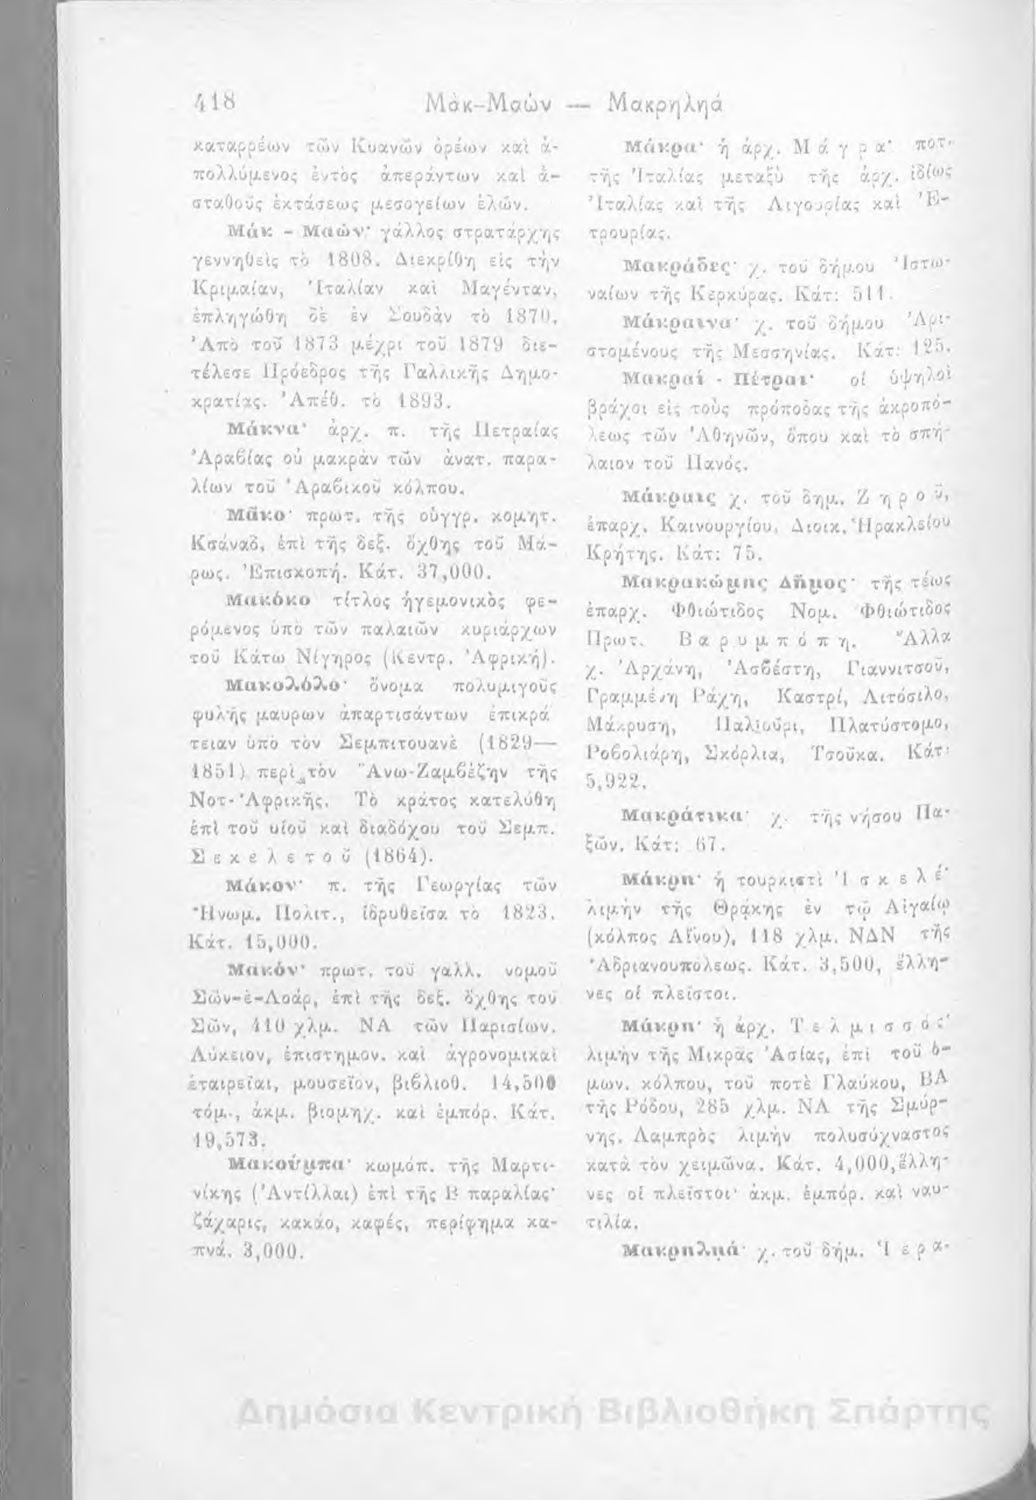 418 Μάκ-Μαών — Μακρηληά
καταρρέων τῶν Κυανῶν ὀρέων καὶ ἀ-
πολλύμενος ἐντὸς ἀπεράντων καὶ ἀ-
σταθοῦς ἐκτάσεως μεσογείων ἑλῶν.
Μάκ - Μαών· γάλλος στρατάρχης
γεννηθεὶς τὸ 1808. Διεκρίθη εἰς τὴν
Κριμαίαν, Ἰταλίαν καὶ Μαγένταν,
ἐπληγώθη δὲ ἐν Σουδὰν τὸ 1870.
Ἀπὸ τοῦ 1873 μέχρι τοῦ 1879 διε-
τέλεσε Πρόεδρος τῆς Γαλλικῆς Δημο-
κρατίας. Ἀπέθ. τὸ 1893.
Μάκνα· ἀρχ. π. τῆς Πετραίας
Ἀραβίας οὐ μακρὰν τῶν ἀνατ. παρα-
λίων τοῦ Ἀραβικοῦ κόλπου.
Μᾶκο· πρωτ. τῆς οὑγγρ. κομητ.
Κσάναδ, ἐπὶ τῆς δεξ. ὄχθης τοῦ Μά-
ρως. Ἐπισκοπή. Κάτ. 37,000.
Μακόκο τίτλος ἡγεμονικὸς φε-
ρόμενος ὑπὸ τῶν παλαιῶν κυριάρχων
τοῦ Κάτω Νίγηρος (Κεντρ. Ἀφρική).
Μακολόλο· ὄνομα πολυμιγοῦς
φυλῆς μαύρων ἀπαρτισάντων ἐπικρά
τειαν ὑπὸ τὸν Σεμπιτουανὲ (1829—
1851) περὶ τὸν Ἄνω-Ζαμβέζην τῆς
Νοτ- Ἀφρικῆς. Τὸ κράτος κατελύθη
ἐπὶ τοῦ υἱοῦ καὶ διαδόχου τοῦ Σεμπ.
Σεκελετοῦ (1864).
Μάκον· π. τῆς Γεωργίας τῶν
Ἡνωμ. Πολιτ., ἱδρυθεῖσα τὸ 1823.
Κάτ. 15,000.
Μακόν· πρωτ. τοῦ γαλλ. νομοῦ
Σών-ὲ-Λοάρ, ἐπὶ τῆς δεξ. ὄχθης τοῦ
Σών, 410 χλμ. ΝΑ τῶν Παρισίων.
Λύκειον, ἐπιστημον. καὶ ἀγρονομικαὶ
ἑταιρεῖαι, μουσεῖον, βιβλιοθ. 14,500
τόμ., ἀκμ. βιομηχ. καὶ ἐμπόρ. Κάτ.
19,573.
Μακούμπα· κωμόπ. τῆς Μαρτι-
νίκης (Ἀντίλλαι) ἐπὶ τῆς Β παραλίας·
ζάχαρις, κακάο, καφές, περίφημα κα-
πνά. 3,000.
Μάκρα· ἡ ἀρχ. Μάγρα· ποτ.
τῆς Ἰταλίας μεταξὺ τῆς ἀρχ. ἰδίως
Ἰταλίας καὶ τῆς Λιγουρίας καὶ Ἐ-
τρουρίας.
Μακράδες· χ. τοῦ δήμου Ἱστω-
ναίων τῆς Κερκύρας. Κάτ: 511.
Μάκραινα· χ. τοῦ δήμου Ἀρι-
στομένους τῆς Μεσσηνίας. Κάτ: 125.
Μακραί - Πέτραι· οἱ ὑψηλοὶ
βράχοι εἰς τοὺς πρόποδας τῆς ἀκροπό-
λεως τῶν Ἀθηνῶν, ὅπου καὶ τὸ σπή-
λαιον τοῦ Πανός.
Μάκραις χ. τοῦ δημ. Ζηροῦ,
ἐπαρχ. Καινουργίου, Διοικ. Ἡρακλείου
Κρήτης. Κάτ: 75.
Μακρακώμης Δῆμος· τῆς τέως
ἐπαρχ. Φθιώτιδος Νομ. Φθιώτιδος
Πρωτ. Βαρυμπόπη. Ἄλλα
χ. Ἀρχάνη, Ἀσβέστη, Γιαννιτσοῦ,
Γραμμένη Ράχη, Καστρί, Λιτόσιλο,
Μάκρυση, Παλιοῦρι, Πλατύστομο,
Ροβολιάρη, Σκόρλια, Τσοῦκα. Κάτ:
5,922.
Μακράτικα· χ. τῆς νήσου Πα-
ξῶν. Κάτ: 67.
Μάκρη· ἡ τουρκιστὶ Ἰσκελέ·
λιμὴν τῆς Θράκης ἐν τῷ Αἰγαίῳ
(κόλπος Αἴνου), 118 χλμ. ΝΔΝ τῆς
Ἀδριανουπόλεως. Κάτ. 3,500, ἕλλη-
νες οἱ πλεῖστοι.
Μάκρη· ἡ ἀρχ. Τελμισσός·
λιμὴν τῆς Μικρᾶς Ἀσίας, ἐπὶ τοῦ ὁ-
μων. κόλπου, τοῦ ποτὲ Γλαύκου, ΒΑ
τῆς Ρόδου, 285 χλμ. ΝΑ τῆς Σμύρ-
νης. Λαμπρὸς λιμὴν πολυσύχναστος
κατὰ τὸν χειμῶνα. Κάτ. 4,000, ἕλλη-
νες οἱ πλεῖστοι· ἀκμ. ἐμπόρ. καὶ ναυ-
τιλία.
Μακρηληά· χ. τοῦ δήμ. Ἱερα-
Δημόσια Κεντρική Βιβλιοθήκη Σπάρτης